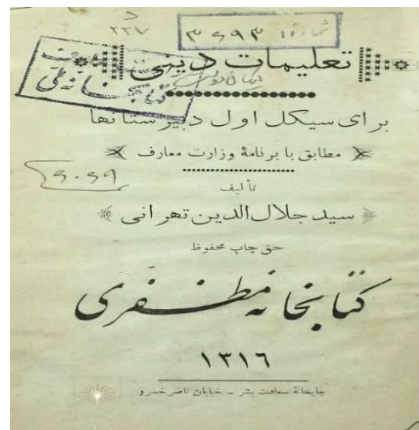 ۲۲۷
شماره ۳۶۹۳
تعلیمات دینی
کتابخانه ملی
برای سیکل اول دبیرستانها
مطابق با برنامهٔ وزارت معارف
تألیف
سید جلال‌الدین تهرانی
حق چاپ محفوظ
کتابخانه مظفری
۱۳۱۶
چاپخانهٔ سعادت بشر ـ خیابان ناصرخسرو